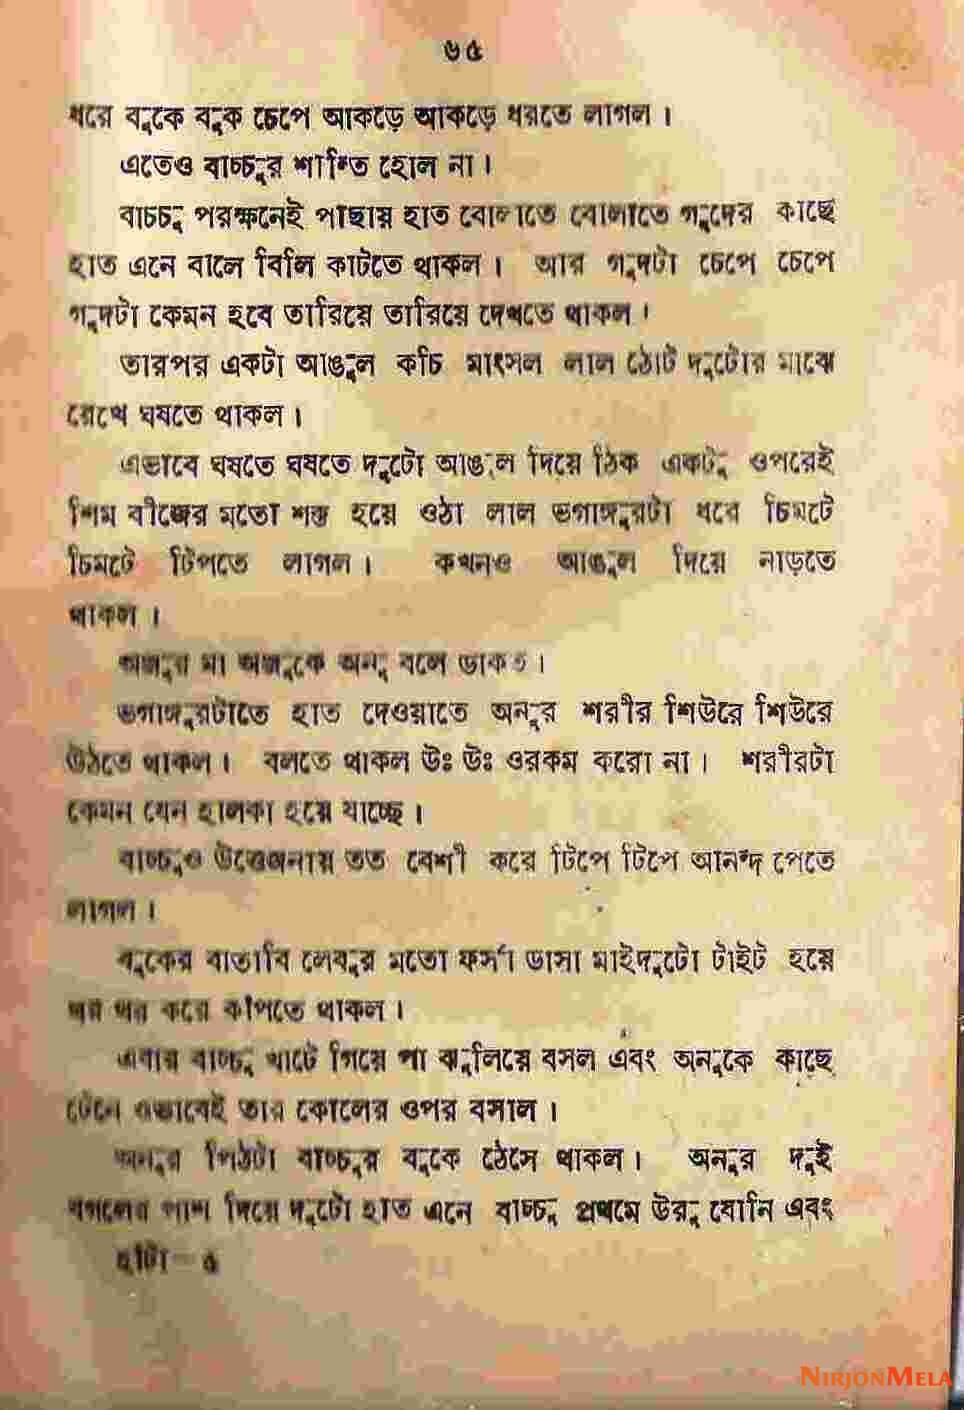 ৬৫
ধরে বুকে বুক চেপে আকড়ে আকড়ে ধরতে লাগল।
এতেও বাচ্চুর শান্তি হোল না।
বাচ্চু পরক্ষনেই পাছায় হাত বোলাতে বোলাতে গুদের কাছে
হাত এনে বালে বিলি কাটতে থাকল। আর গুদটা চেপে চেপে
গুদটা কেমন হবে তারিয়ে তারিয়ে দেখতে থাকল।
তারপর একটা আঙুল কচি মাংসল লাল ঠোট দুটোর মাঝে
রেখে ঘষতে থাকল।
এভাবে ঘষতে ঘষতে দুটো আঙুল দিয়ে ঠিক একটু ওপরেই
শিম বীজের মতো শক্ত হয়ে ওঠা লাল ভগাঙ্কুরটা ধরে চিমটে
চিমটে টিপতে লাগল। কখনও আঙুল দিয়ে নাড়তে
থাকল।
অঞ্জুর মা অঞ্জুকে অনু বলে ডাকত।
ভগাঙ্কুরটাতে হাত দেওয়াতে অনুর শরীর শিউরে শিউরে
উঠতে থাকল। বলতে থাকল উঃ উঃ ওরকম করো না। শরীরটা
কেমন যেন হালকা হয়ে যাচ্ছে।
বাচ্চুও উত্তেজনায় তত বেশী করে টিপে টিপে আনন্দ পেতে
লাগল।
বুকের বাতাবি লেবুর মতো ফর্সা ডাসা মাইদুটো টাইট হয়ে
থর থর করে কাঁপতে থাকল।
এবার বাচ্চু খাটে গিয়ে পা ঝুলিয়ে বসল এবং অনুকে কাছে
টেনে ওভাবেই তার কোলের ওপর বসাল।
অনুর পিঠটা বাচ্চুর বুকে ঠেসে থাকল। অনুর দুই
বগলের পাশ দিয়ে দুটো হাত এনে বাচ্চু প্রথমে উরু যোনি এবং
NIRJONMELA